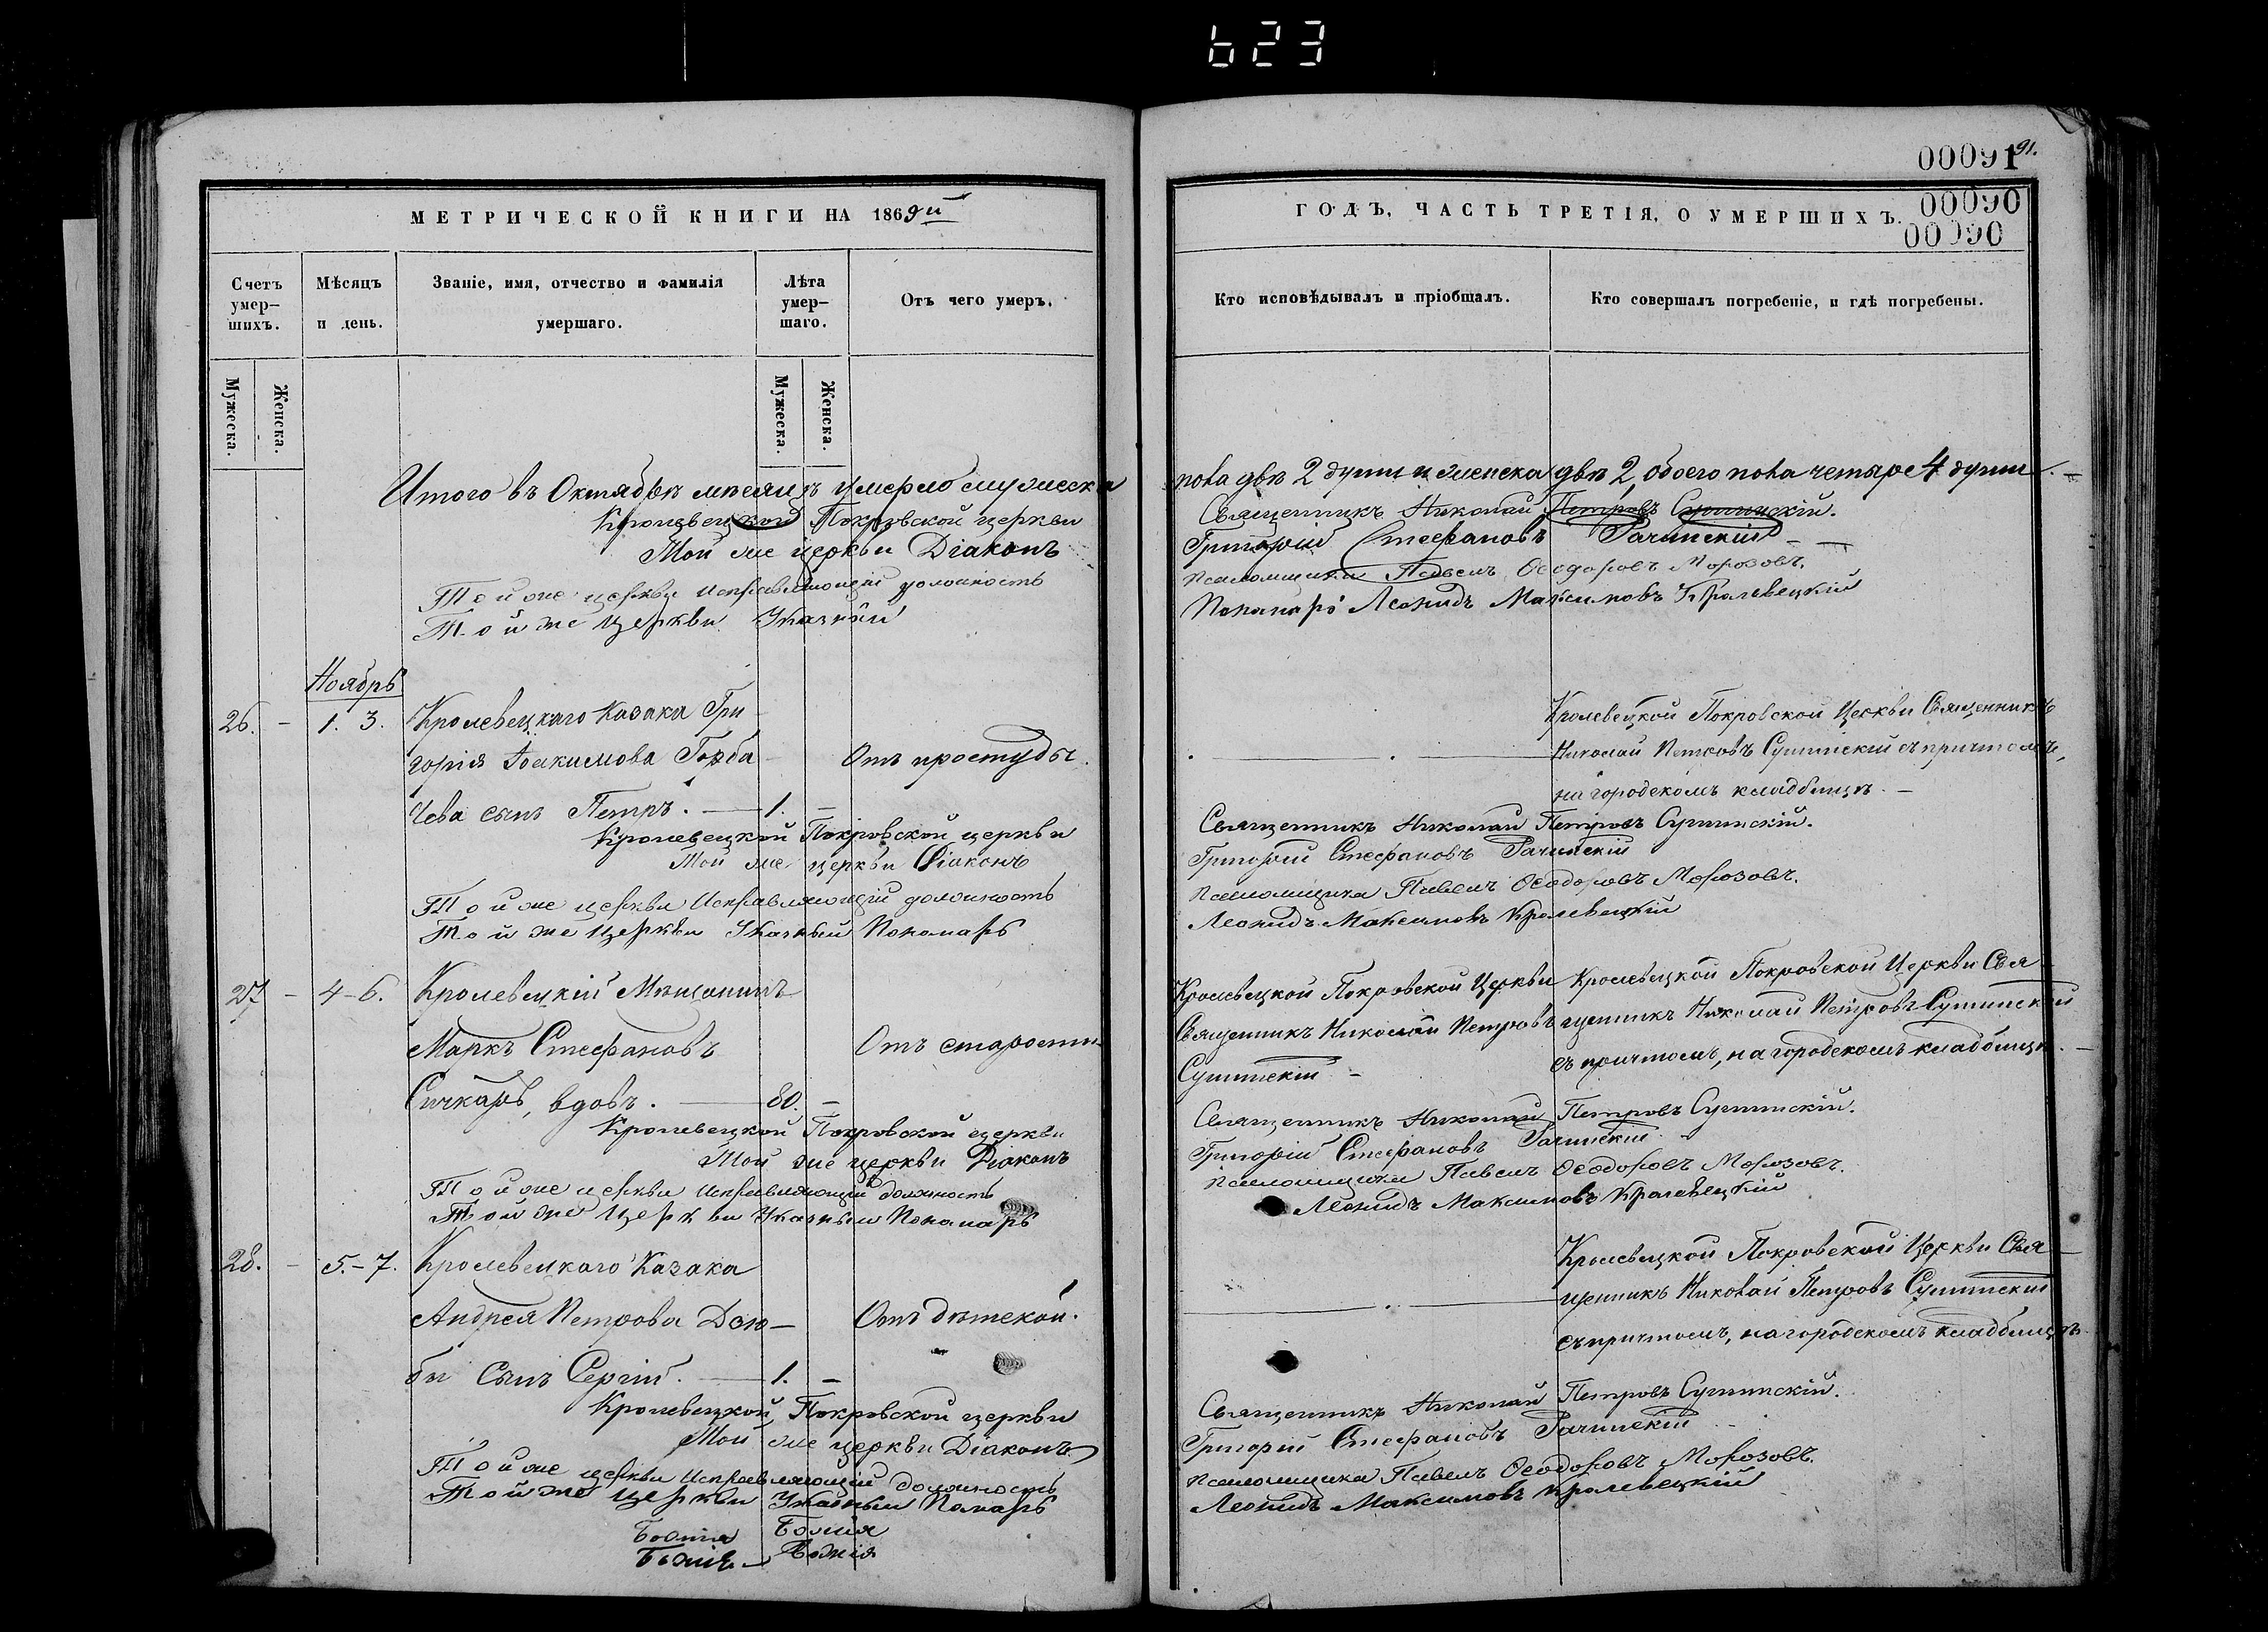 623
МЕТРИЧЕСКОЙ КНИГИ НА 1869й
Счетъ умер-шихъ.
Мѣсяцъ и день.
Званіе, имя, отчество и фамилія умершаго.
Лѣта умер-шаго.
Отъ чего умеръ.
Мужеска.
Женска.
Мужеска.
Женска.
Итого въ Октябрѣ мѣсяцѣ умерло мужеска
Кролевецкой Покровской церкви
Той же церкви Діаконъ
Той же церкви Исправляющій должность
Той же Церкви Указный
Ноябрь
26. - 1. 3. Кролевецкаго Казака Гри
горія Іоакимова Горба Отъ простуды.
чева сынъ Петръ. 1. -
Кролевецкой Покровской церкви
Той же церкви Діаконъ
Той же церкви Исправляющій должность
Той же Церкви Указный Пономарь
27 - 4-6. Кролевецкій Мѣщанинъ
Маркъ Стефановъ Отъ старости
Сичкарь, вдовъ. 80. -
Кролевецкой Покровской церкви
Той же церкви Діаконъ
Той же церкви Исправляющій должность
Той же Церкви Указный Пономарь
28. - 5.-7. Кролевецкаго Казака
Андрея Петрова Дзю- Отъ дѣтской.
бы Сынъ Сергій. 1. -
Кролевецкой Покровской церкви
Той же церкви Діаконъ
Той же церкви Исправляющій должность
Той же Церкви Указный Помарь
Божія Божія
Божія Божія
00091 91.
00090
00090
ГОДЪ, ЧАСТЬ ТРЕТІЯ, О УМЕРШИХЪ.
Кто исповѣдывалъ и пріобщалъ.
Кто совершалъ погребеніе, и гдѣ погребены.
пола двѣ 2 души и женска двѣ 2, обоего пола четыре 4 души.
Священникъ Николай Петровъ
Григорій Стефановъ Рачинскій
псаломщика Павелъ Ѳеодоровъ Морозовъ.
Пономарь Леонидъ Максимовъ Кролевецкій
Кролевецкой Покровской Церкви Священникъ
Николай Петровъ съ причтомъ,
на городскомъ кладбищѣ.
Священникъ Николай Петровъ
Григорій Стефановъ Рачинскій
псаломщика Павелъ Ѳеодоровъ Морозовъ.
Леонидъ Максимовъ Кролевецкій
Кролевецкой Покровской Церкви
Священникъ Николай Петровъ
Кролевецкой Покровской Церкви Свя
щенникъ Николай Петровъ
съ причтомъ, на городскомъ кладбищѣ.
Священникъ Николай Петровъ
Григорій Стефановъ Рачинскій
псаломщика Павелъ Ѳеодоровъ Морозовъ.
Леонидъ Максимовъ Кролевецкій
Кролевецкой Покровской Церкви Свя
щенникъ Николай Петровъ
съ причтомъ, на городскомъ кладбищѣ.
Священникъ Николай Петровъ
Григорій Стефановъ Рачинскій
псаломщика Павелъ Ѳеодоровъ Морозовъ.
Леонидъ Максимовъ Кролевецкій